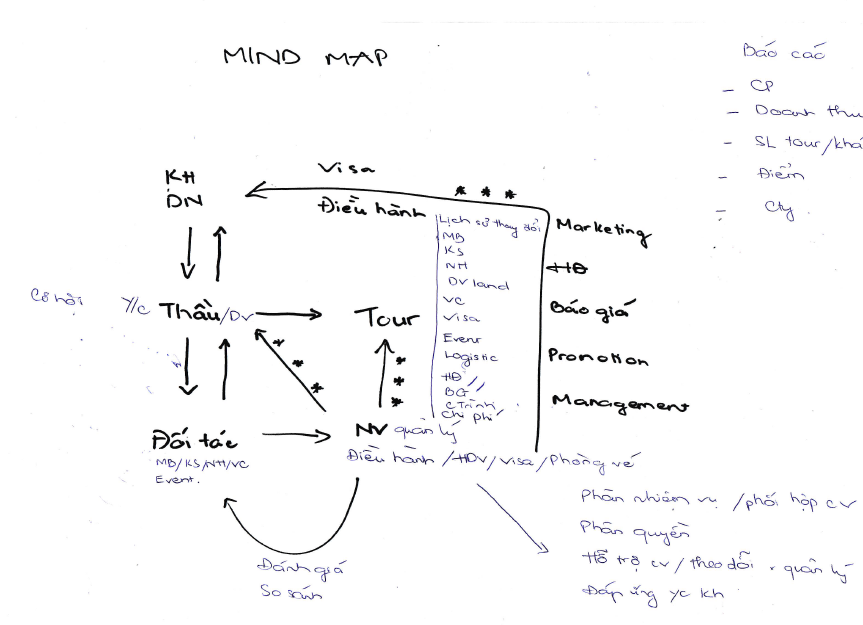 MIND MAP
Báo cáo
- CP
- Doanh thu
- SL tour/khá
- Điểm
- Cty
KH
DN
Visa
* * *
Điều hành
Lịch sử thay đổi
MB
KS
NH
DV land
VC
Visa
Event
Logistic
HĐ //
BG //
C Trình
Chi phí
Marketing
HĐ
Báo giá
Promotion
Management
Cơ hội
Y/c Thầu/DV
Tour
* * *
* * *
Đối tác
MB/KS/NH/VC
Event.
NV quản lý
Điều hành /HDV/Visa/Phòng vé
Phân nhiệm vụ /phối hợp cv
Phân quyền
Hỗ trợ cv/theo dõi, quản lý
Đáp ứng yc kh
Đánh giá
So sánh